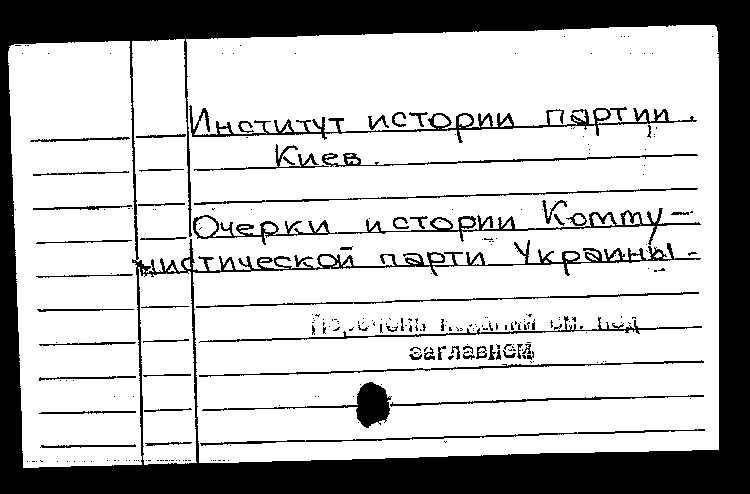 Институт истории партии.
Киев.
Очерки истории Комму-
нистической парти Украины.
Перечень изданий см. под
заглавием